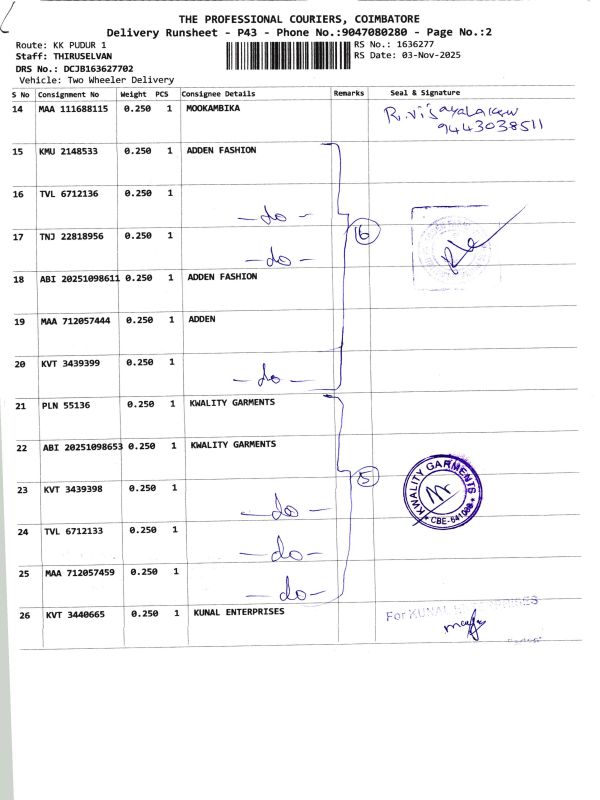 THE PROFESSIONAL COURIERS, COIMBATORE
Delivery Runsheet - P43 - Phone No.:9047080280 - Page No.:2
Route: KK PUDUR 1 RS No.: 1636277
Staff: THIRUSELVAN RS Date: 03-Nov-2025
DRS No.: DCJB163627702
Vehicle: Two Wheeler Delivery
S No Consignment No Weight PCS Consignee Details Remarks Seal & Signature
14 MAA 111688115 0.250 1 MOOKAMBIKA
9443038511
15 KMU 2148533 0.250 1 ADDEN FASHION
16 TVL 6712136 0.250 1 -do-
17 TNJ 22818956 0.250 1 -do-
18 ABI 20251098611 0.250 1 ADDEN FASHION
19 MAA 712057444 0.250 1 ADDEN
20 KVT 3439399 0.250 1 -do-
21 PLN 55136 0.250 1 KWALITY GARMENTS
22 ABI 20251098653 0.250 1 KWALITY GARMENTS
5
KWALITY GARMENTS
23 KVT 3439398 0.250 1 -do-
24 TVL 6712133 0.250 1 -do-
25 MAA 712057459 0.250 1 -do-
26 KVT 3440665 0.250 1 KUNAL ENTERPRISES For KUNAL